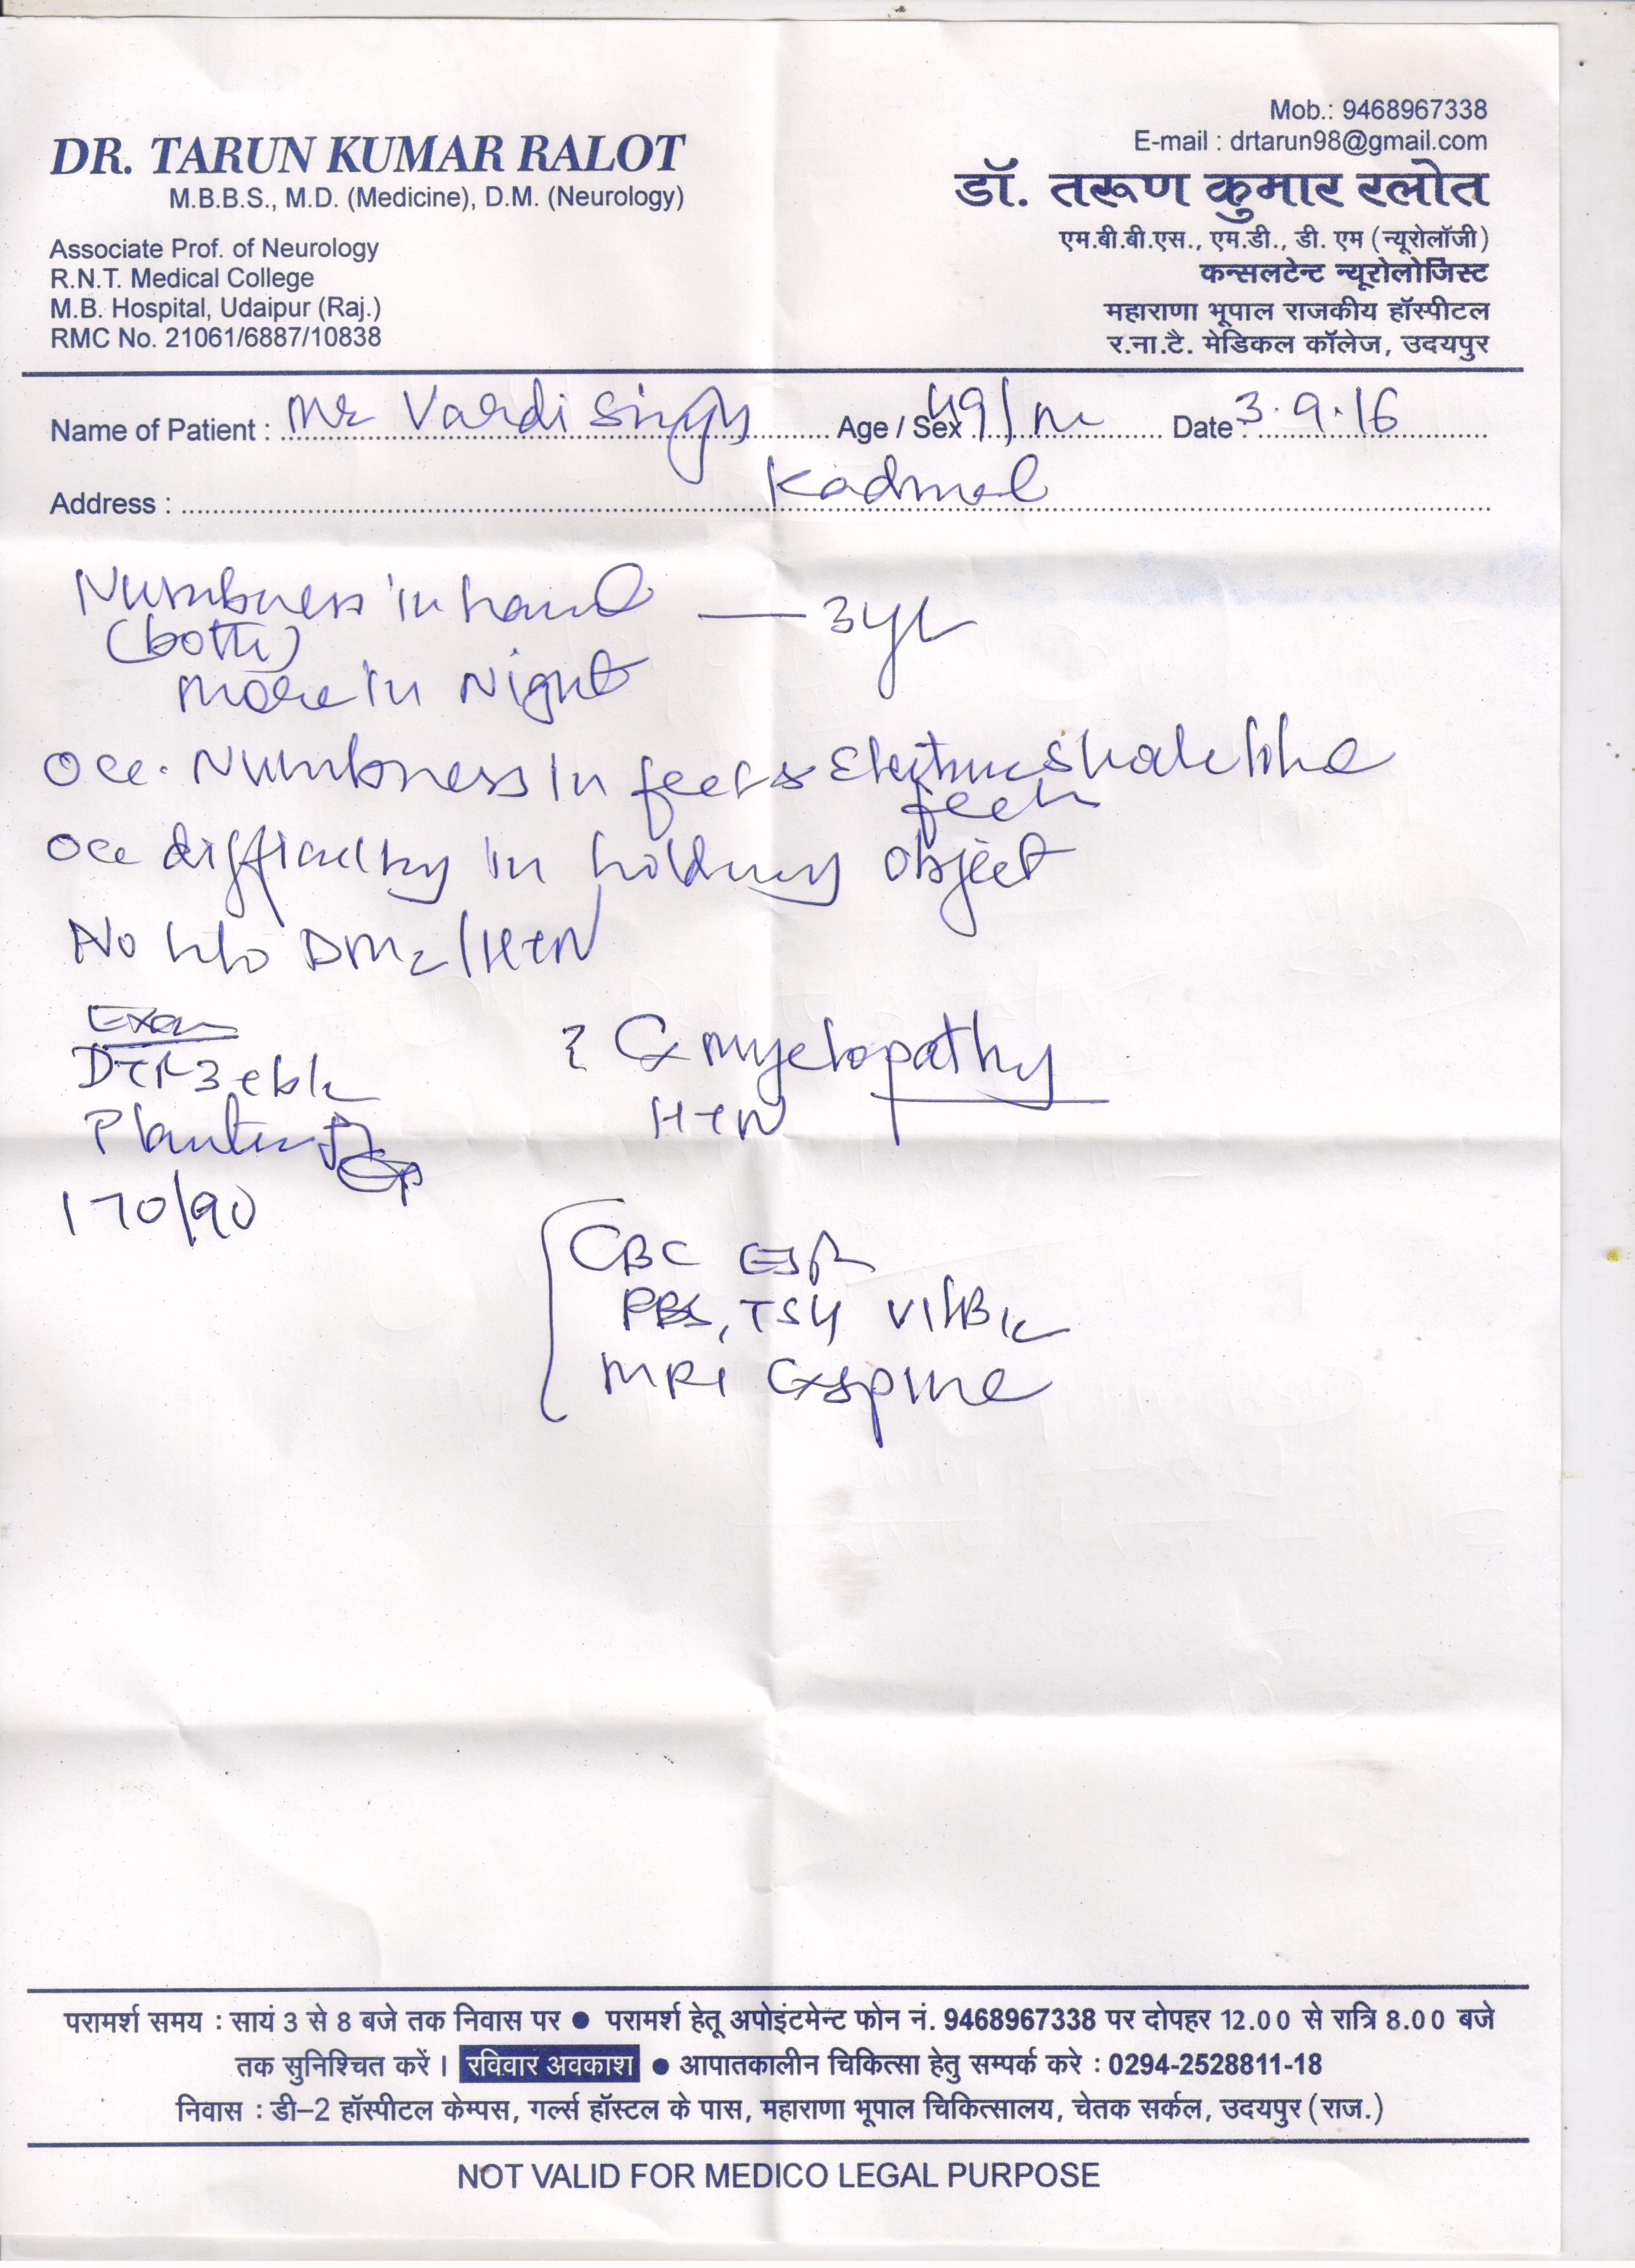 Mob.: 9468967338
E-mail : drtarun98@gmail.com
DR. TARUN KUMAR RALOT
M.B.B.S., M.D. (Medicine), D.M. (Neurology)
Associate Prof. of Neurology
R.N.T. Medical College
M.B. Hospital, Udaipur (Raj.)
RMC No. 21061/6887/10838
डॉ. तरूण कुमार रलोत
एम.बी.बी.एस., एम.डी., डी. एम (न्यूरोलॉजी)
कन्सलटेन्ट न्यूरोलोजिस्ट
महाराणा भूपाल राजकीय हॉस्पीटल
र.ना.टै. मेडिकल कॉलेज, उदयपुर
Name of Patient : Mr Vardi Singh Age / Sex 49/m Date : 3.9.16
Address : Kadmal
Numbness in hand — 3yr
(both)
more in Night
Occ. Numbness in feet & like
feeli
Occ difficulty in holding object
No h/o DM2/HTN
Exam
DTR 3+
Plantar
170/90
? Cx myelopathy
HTN
CBC ESR
PBS, TSH Vit B12
MRI Cx spine
परामर्श समय : सायं 3 से 8 बजे तक निवास पर ● परामर्श हेतू अपोइंटमेन्ट फोन नं. 9468967338 पर दोपहर 12.00 से रात्रि 8.00 बजे
तक सुनिश्चित करें । रविवार अवकाश ● आपातकालीन चिकित्सा हेतु सम्पर्क करे : 0294-2528811-18
निवास : डी–2 हॉस्पीटल केम्पस, गर्ल्स हॉस्टल के पास, महाराणा भूपाल चिकित्सालय, चेतक सर्कल, उदयपुर (राज.)
NOT VALID FOR MEDICO LEGAL PURPOSE